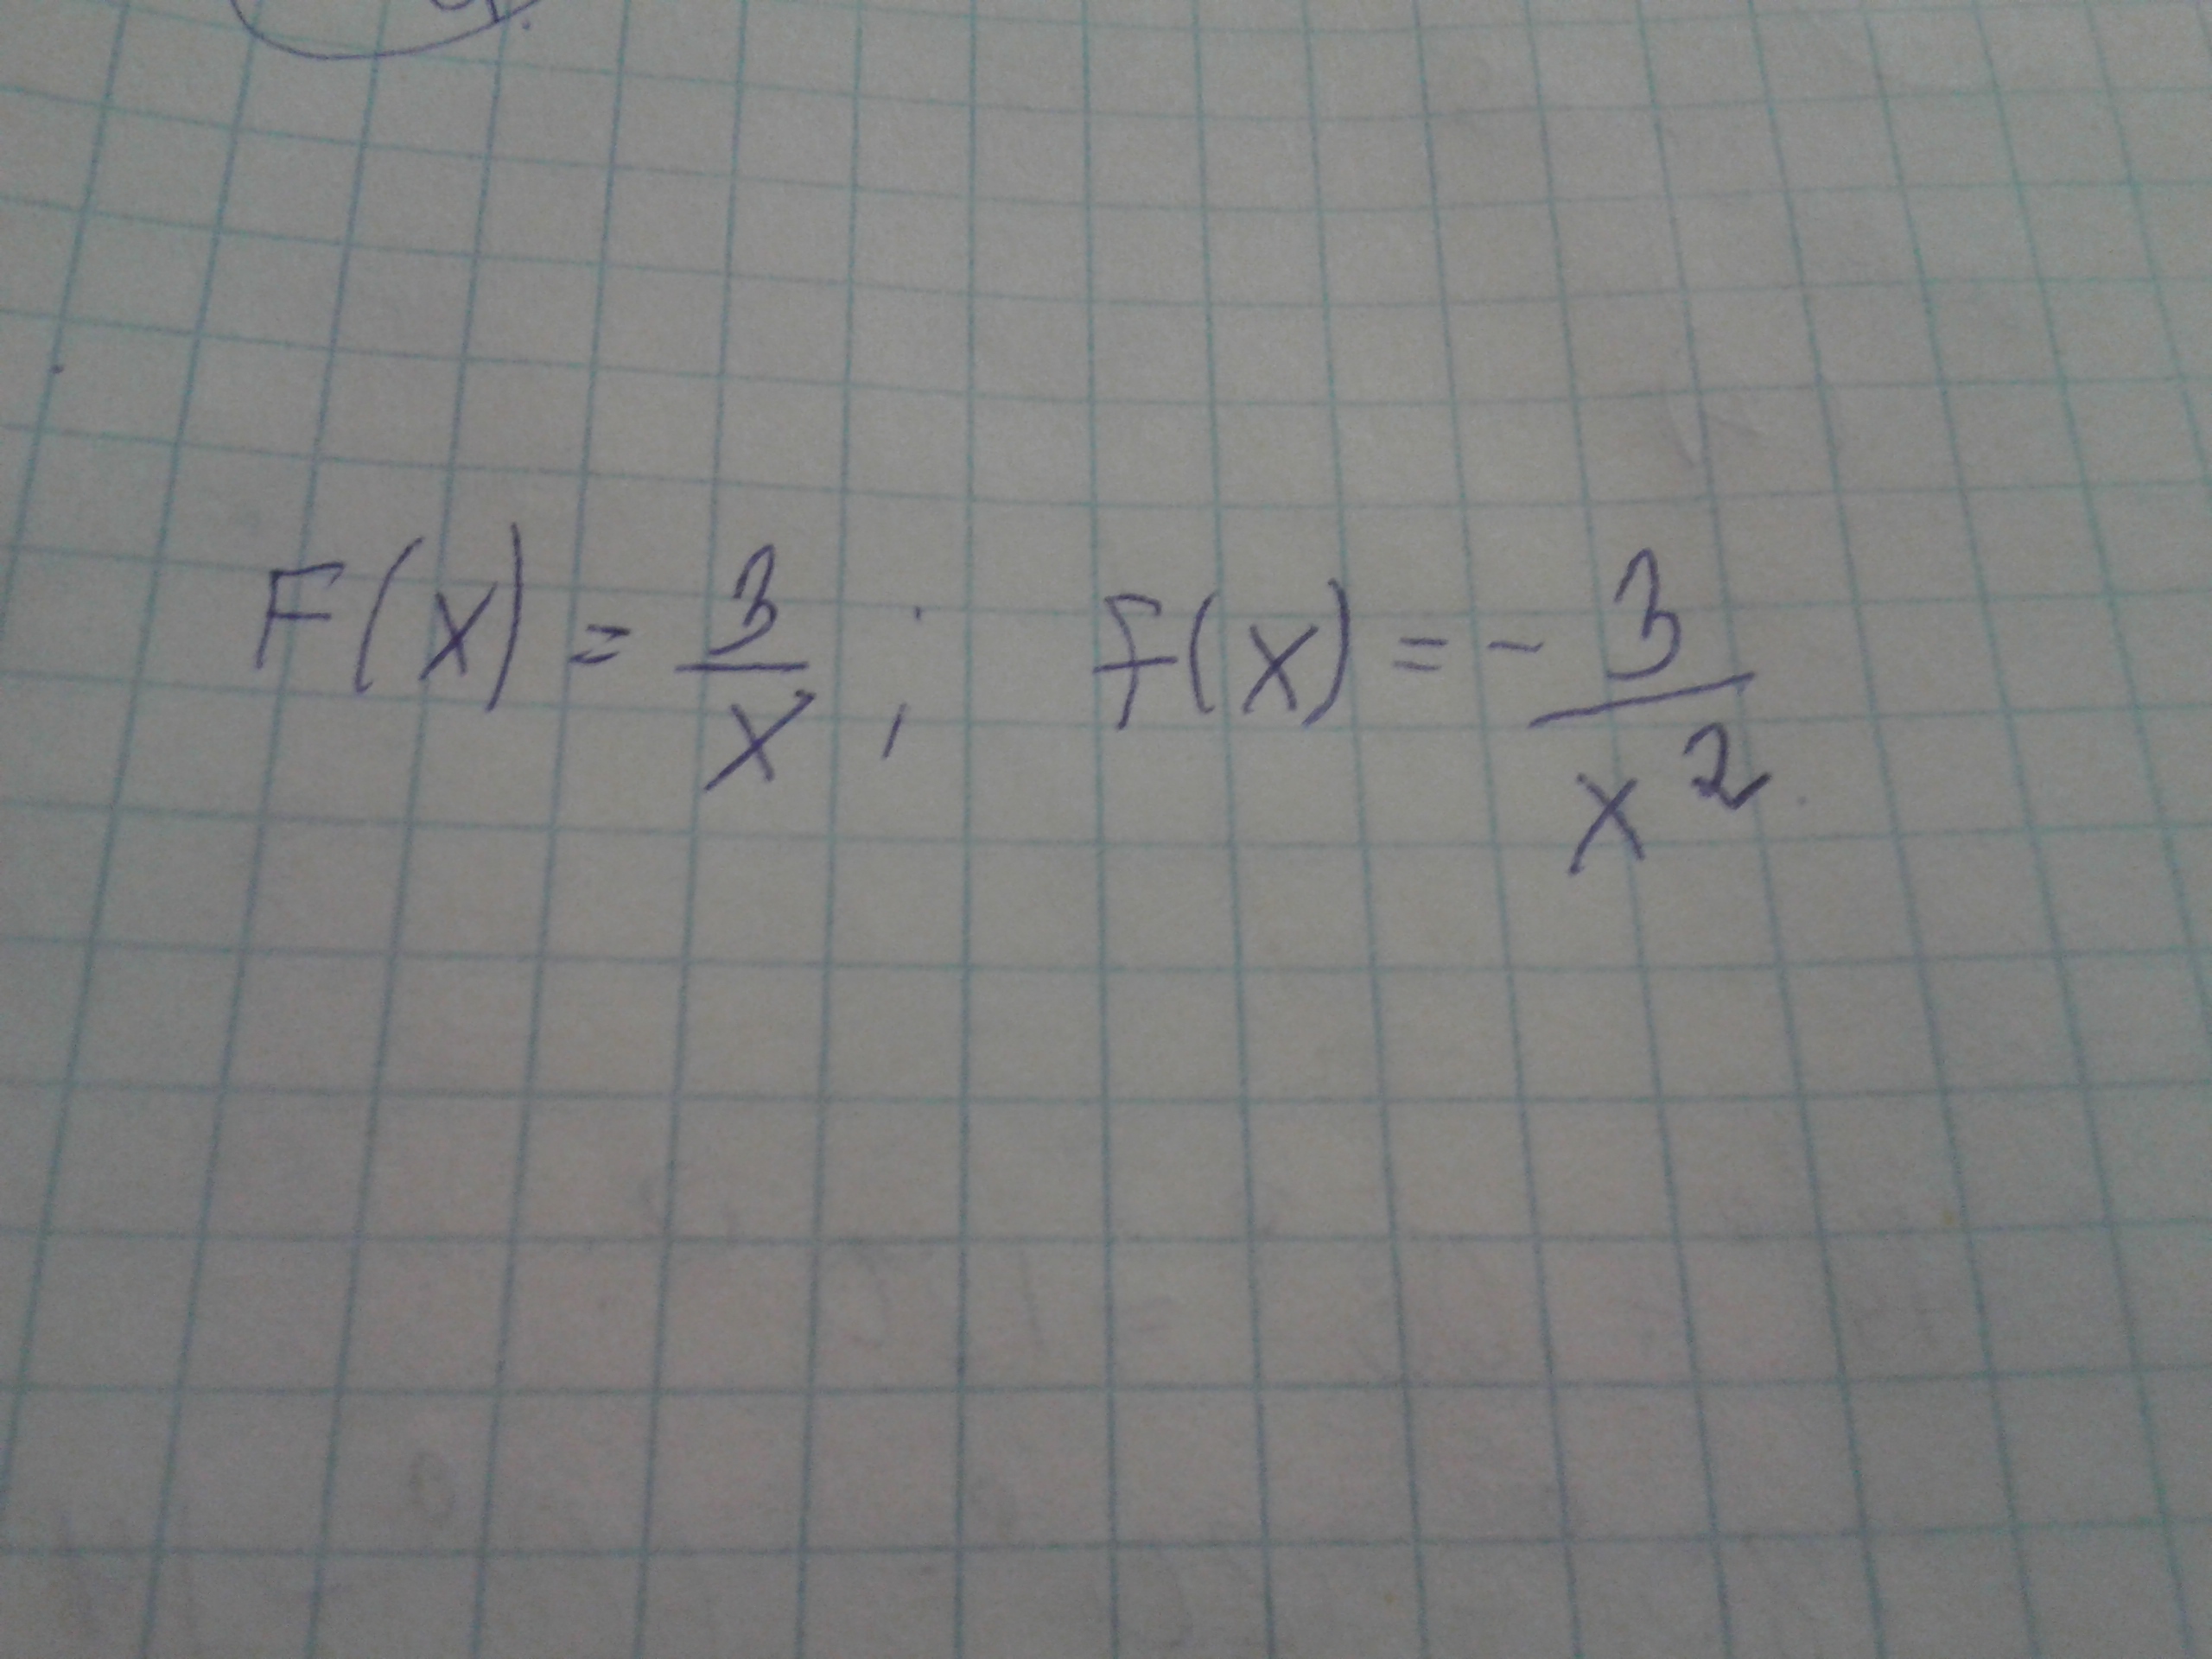 F(x) = 3/x ; f(x) = - 3/x²